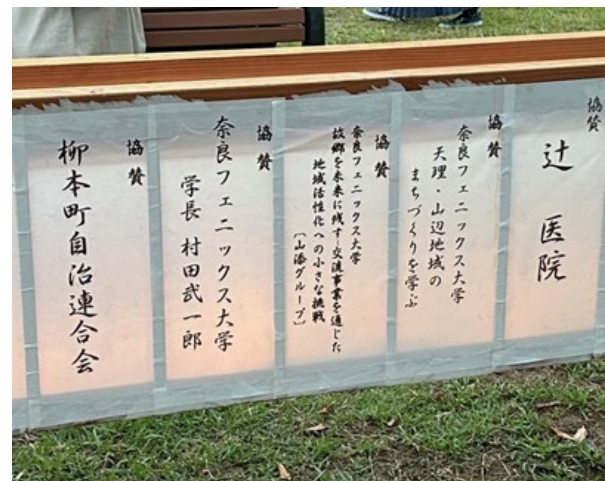 協賛
辻 医院
協賛
奈良フェニックス大学
天理・山辺地域の
まちづくりを学ぶ
協賛
奈良フェニックス大学
故郷を未来に残す交流事業を通じた
地域活性化への小さな挑戦
〔山添グループ〕
協賛
奈良フェニックス大学
学長 村田武一郎
協賛
柳本町自治連合会